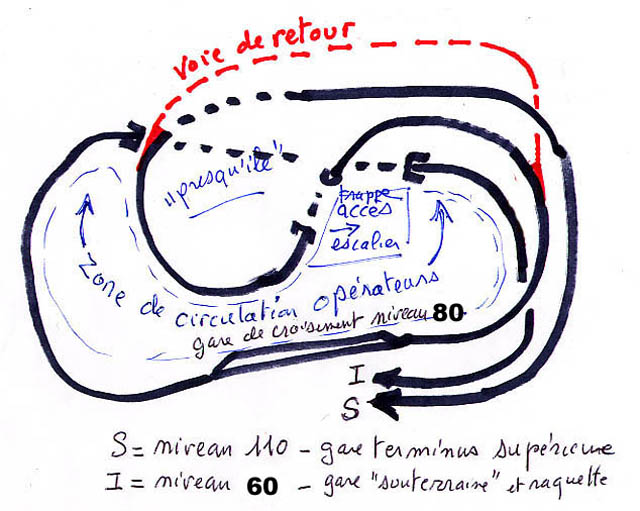 voie de retour
"presqu'île"
trappe
accès
→
escalier
zone de circulation opérateurs
gare de croisement niveau 80
I
S
S = niveau 110 - gare terminus supérieure
I = niveau 60 - gare "souterraine" et raquette